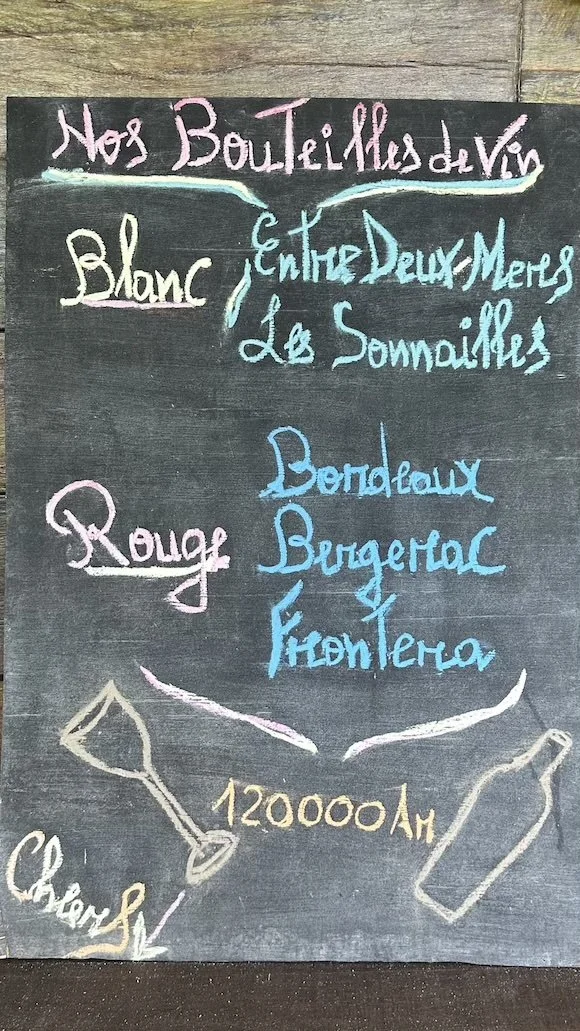 Nos Bouteilles de Vin
Blanc
Entre Deux-Meres
Les Sonnailles
Rouge
Bordeaux
Bergerac
Frontera
120000 Ar
Cheers